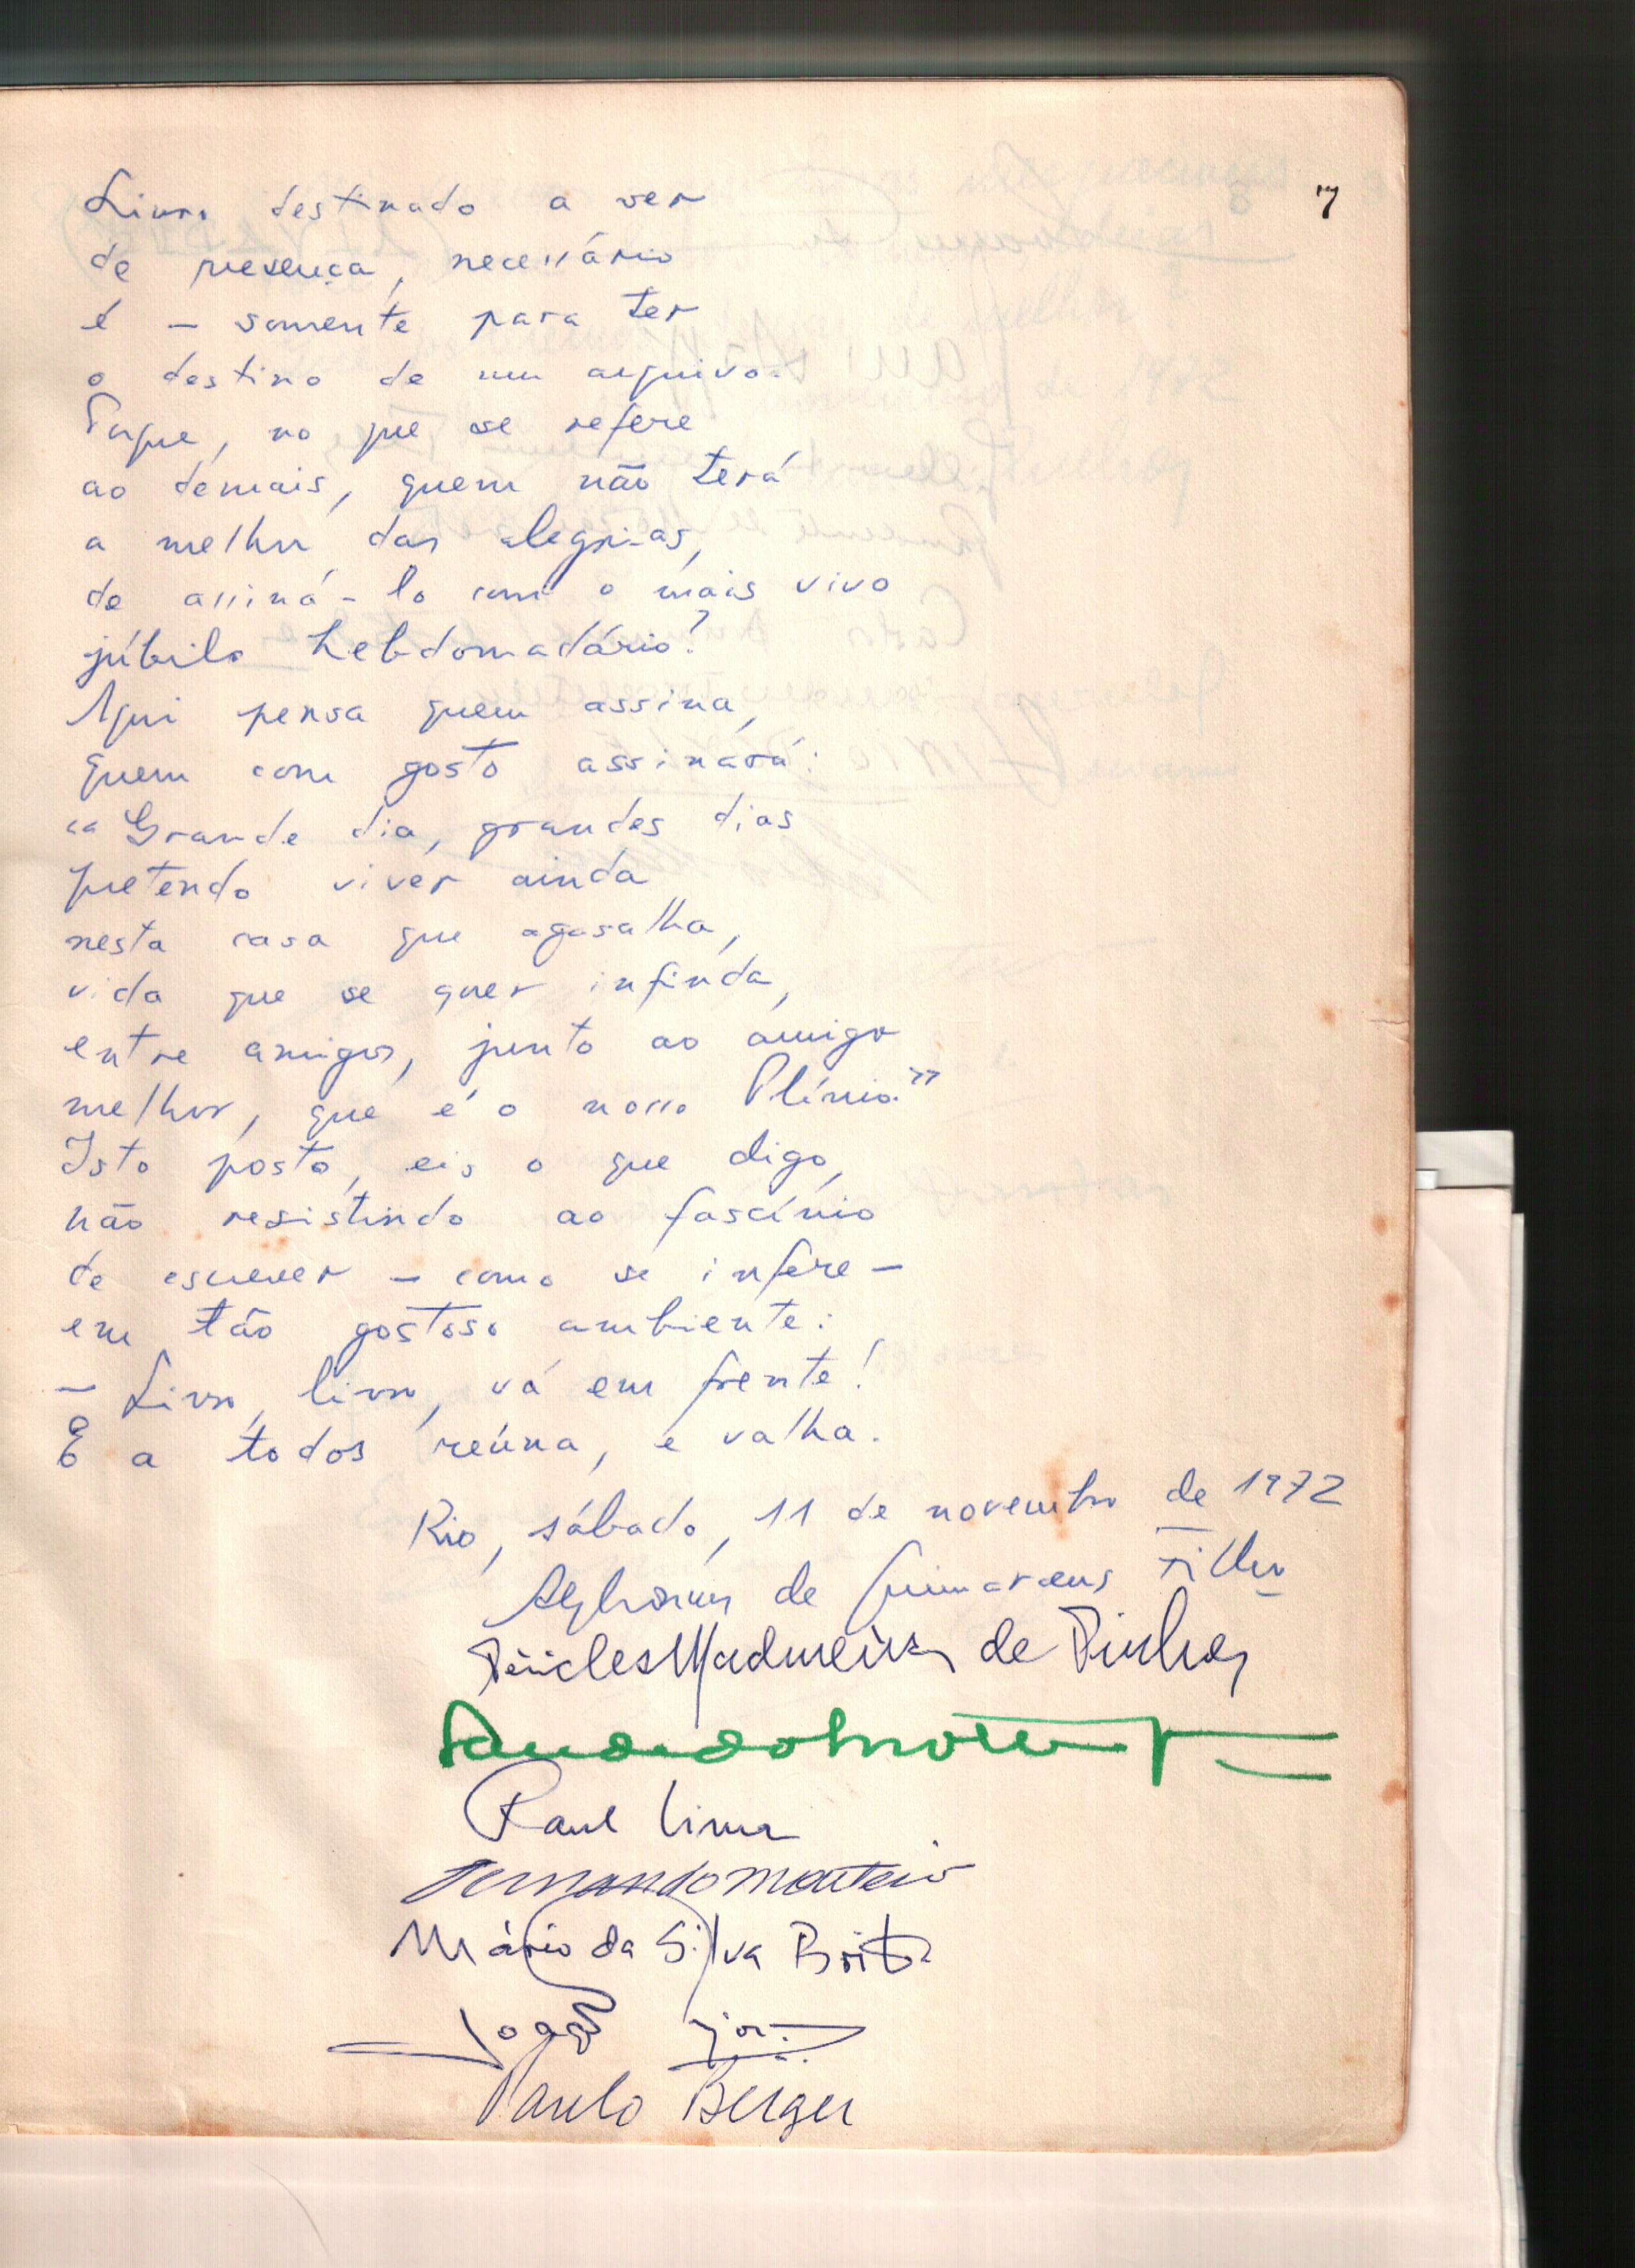 7
Livro destinado a ser
de presença, necessário
é – somente para ter
o destino de um arquivo.
Porque, no que se refere
ao demais, quem não terá
a melhor das alegrias,
de assiná-lo com o mais vivo
júbilo hebdomadário?
Aqui pensa quem assina,
quem com gosto assinará:
"Grande dia, grandes dias
pretendo viver ainda
nesta casa que agasalha,
vida que se quer infinda,
entre amigos, junto ao amigo
melhor, que é o nosso Plínio."
Isto posto, eis o que digo,
não resistindo ao fascínio
de escrever – como se infere –
em tão gostoso ambiente:
– Livro, livro, vá em frente!
E a todos reúna, e valha.
Rio, sábado, 11 de novembro de 1972
Alphonsus de Guimaraens Filho
Péricles Madureira de Pinho
Raul Lima
Fernando Monteiro
Mário da Silva Brito
Paulo Berger